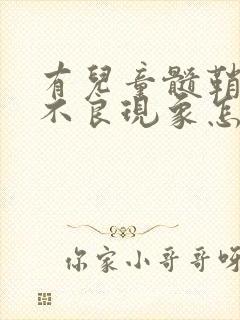 有兒童髓鞘
不良現象怎
你家小哥哥呀